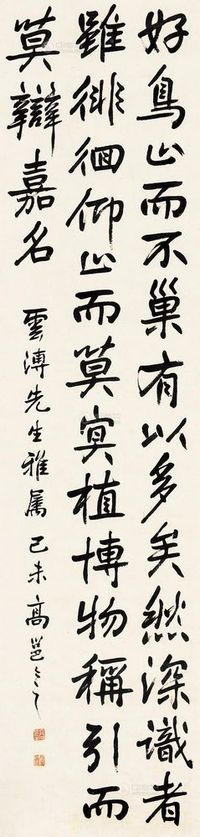 好鳥止而不巢有以多矣然深識者
雖徘徊仰止而莫寘植博物稱引而
莫辯嘉名
雲溥先生雅屬 己未高邕